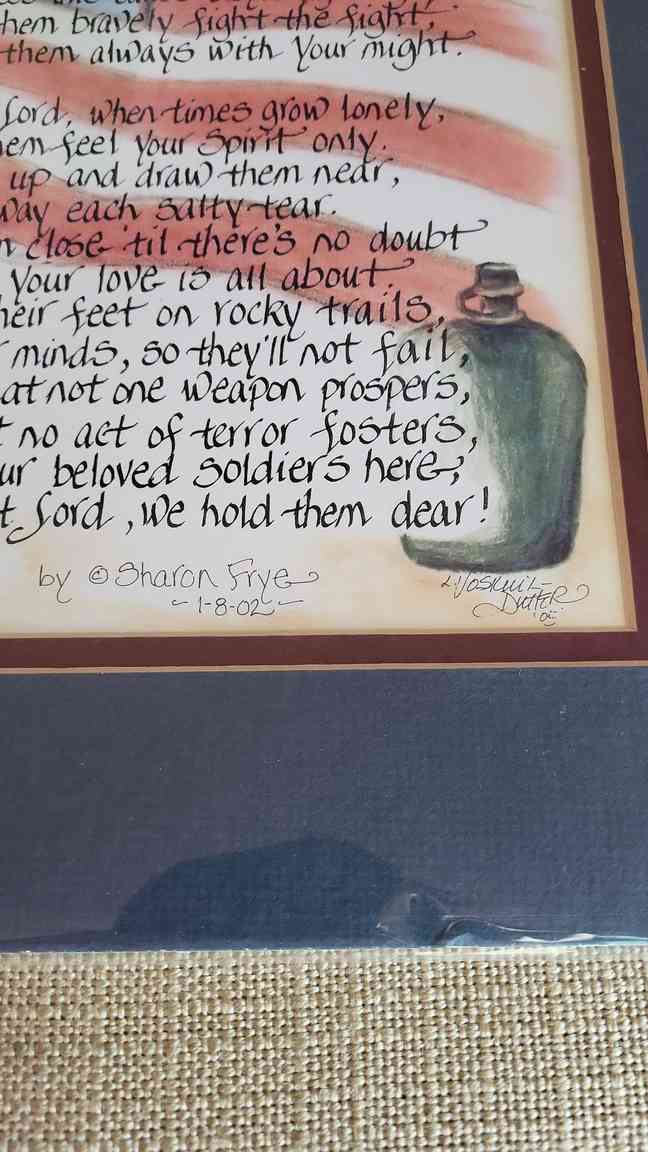 them bravely fight the fight,
them always with Your might.
Lord, when times grow lonely,
em feel Your Spirit only.
up and draw them near,
way each salty tear.
n close 'til there's no doubt
Your love is all about.
heir feet on rocky trails,
minds, so they'll not fail,
at not one weapon prospers,
t no act of terror fosters,
ur beloved soldiers here;
t Lord, we hold them dear!
by © Sharon Frye
~ 1-8-02 ~
L. Voskuil-
Dutter
'05